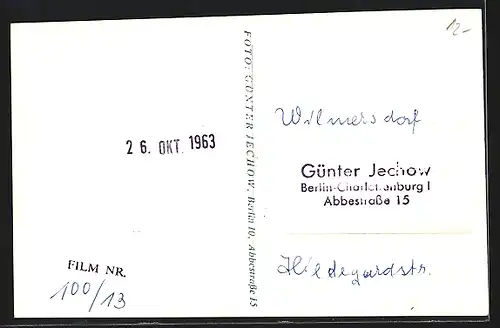 12,-
26. OKT. 1963
FILM NR.
100/13
FOTO: GÜNTER JECHOW, Berlin 10, Abbestraße 15
Wilmersdorf
Günter Jechow
Berlin-Charlottenburg 1
Abbestraße 15
Hildegardstr.